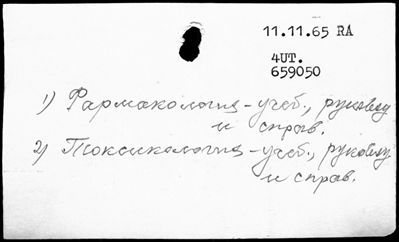 11.11.65 RA
4UT.
659050
1) Фармакология - учеб., руковод
и справ.
2) Токсикология - учеб., руковод
и справ.